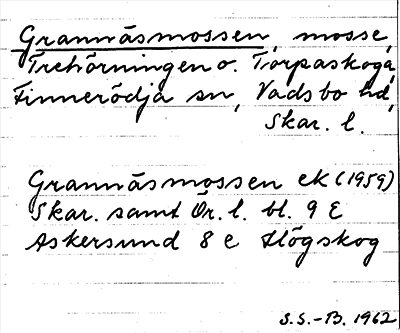 Grannäsmossen, mosse,
Trehörningen o. Torpaskoga,
Finnerödja sn, Vadsbo hd,
Skar. l.
Grannäsmossen ek (1959)
Skar. samt Ör. l. bl. 9 E
Askersund 8 e Högskog
S.S.-B. 1962